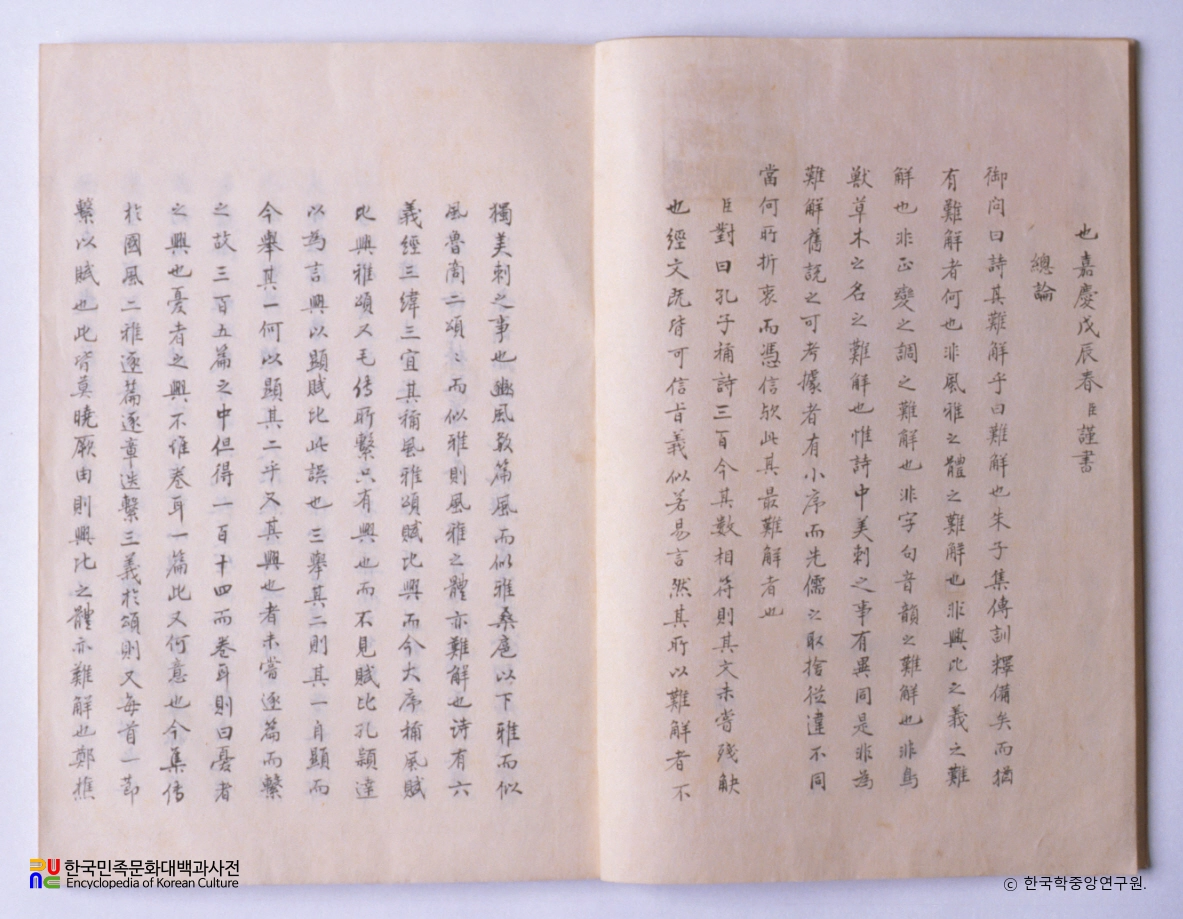 也嘉慶戊辰春臣謹書
總論
御問曰詩其難解乎曰難解也朱子集傳訓釋備矣而猶
有難解者何也非風雅之體之難解也非興比之義之難
解也非正變之調之難解也非字句音韻之難解也非鳥
獸草木之名之難解也惟詩中美刺之事有異同是非為
難解舊説之可考據者有小序而先儒之取捨從違不同
當何所折衷而憑信欤此其最難解者也
臣對曰孔子稱詩三百今其數相符則其文未嘗殘缺
也經文旣皆可信旨義似若易言然其所以難解者不
獨美刺之事也豳風數篇風而似雅桑扈以下雅而似
風魯商二頌〻而似雅則風雅之體亦難解也诗有六
義經三緯三宜其稱風雅頌賦比興而今大序稱風賦
比興雅頌又毛传所繫只有興也而不見賦比孔穎達
以為言興以顯賦比此誤也三舉其二則其一自顯而
今舉其一何以顯其二乎又其興也者未嘗逐篇而繫
之故三百五篇之中但得一百十四而卷耳則曰憂者
之興也憂者之興不惟卷耳一篇此又何意也今集传
於國風二雅逐篇逐章迭繫三義於頌則又每首一節
繫以賦也此皆莫曉厥由則興比之體亦難解也鄭樵
한국민족문화대백과사전
Encyclopedia of Korean Culture
ⓒ 한국학중앙연구원.